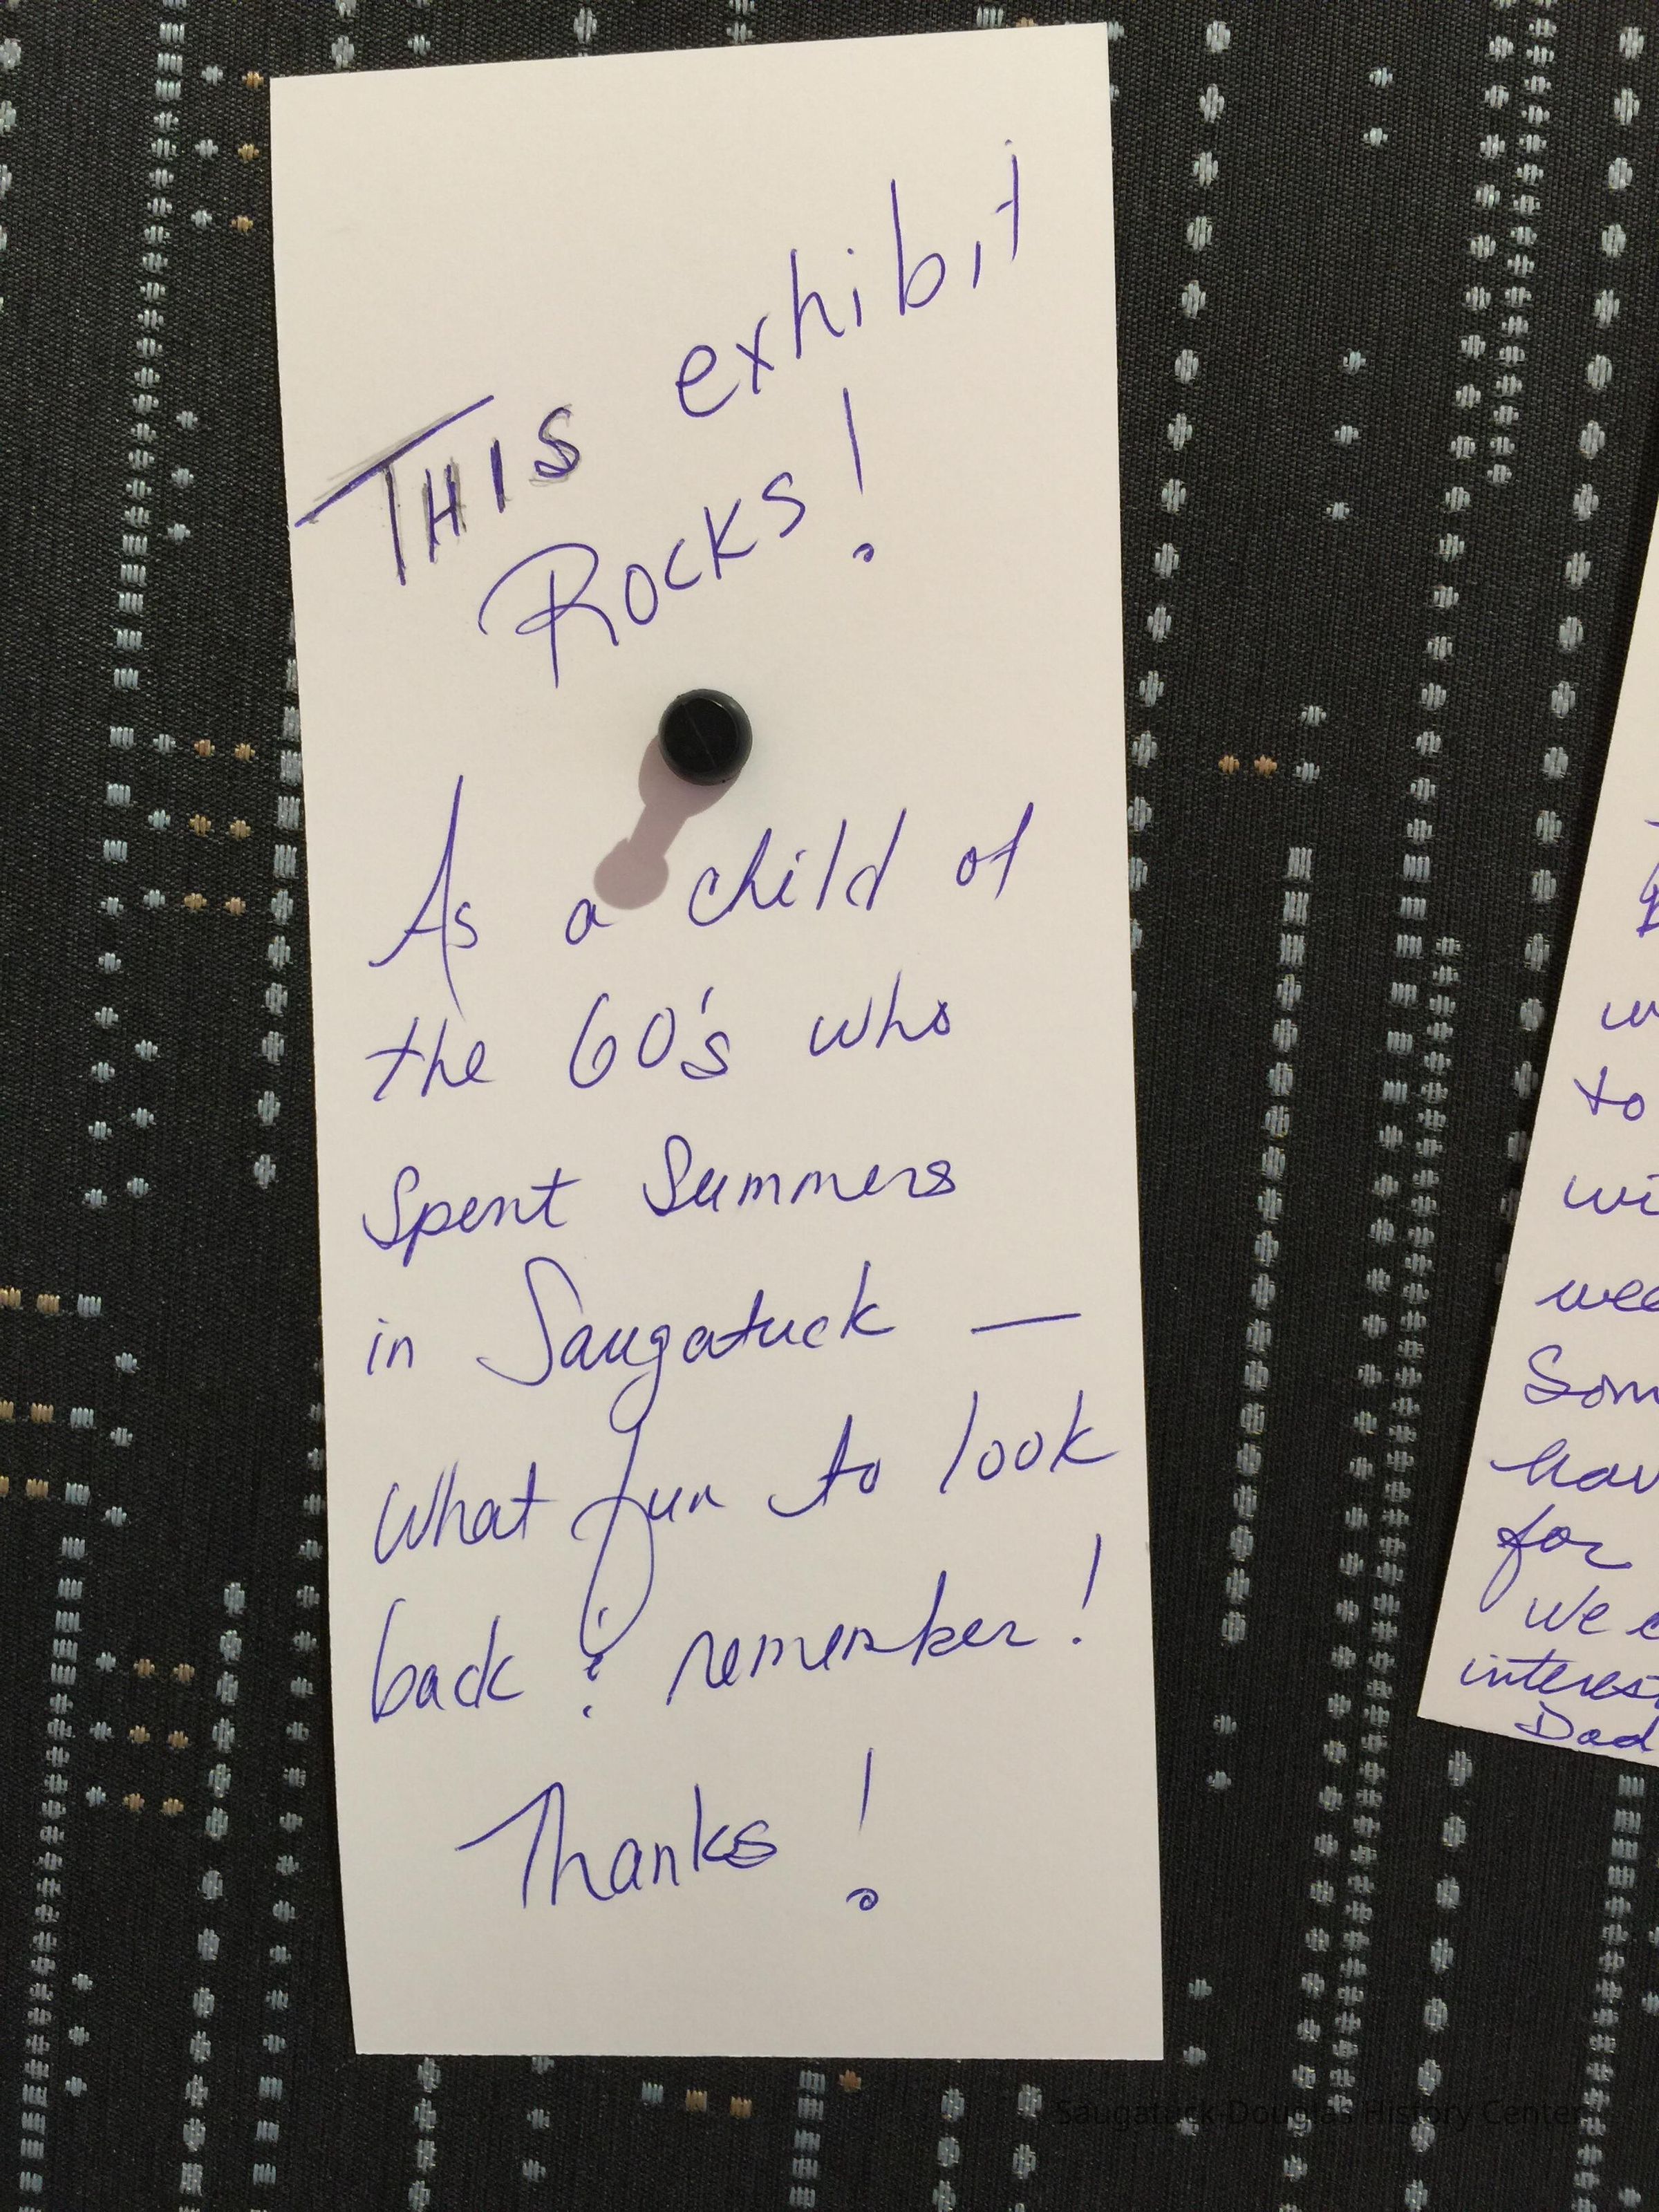 THIS exhibit
Rocks!
As a child of
the 60's who
Spent Summers
in Saugatuck —
What fun to look
back & remember!
Thanks!
to
wi
wee
Som
hav
for
We
interest
Dad
Saugatuck-Douglas History Center